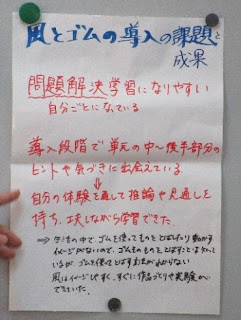 風とゴムの導入の課題と
成果
問題解決学習になりやすい
自分ごとになっている
導入段階で単元の中～後半部分の
ヒントや気づきに出会えている
⇓
自分の体験を通して推論や見通しを
持ち、工夫しながら学習できた。
→ 生活の中でゴムを使ってものを とばしたり動かす
イメージがないので、ゴムそのものを とばすことは
いるが、ゴムを使ってとばす わからない
風はイメージしやすく、すぐに作品づくりや実験が
できていた。